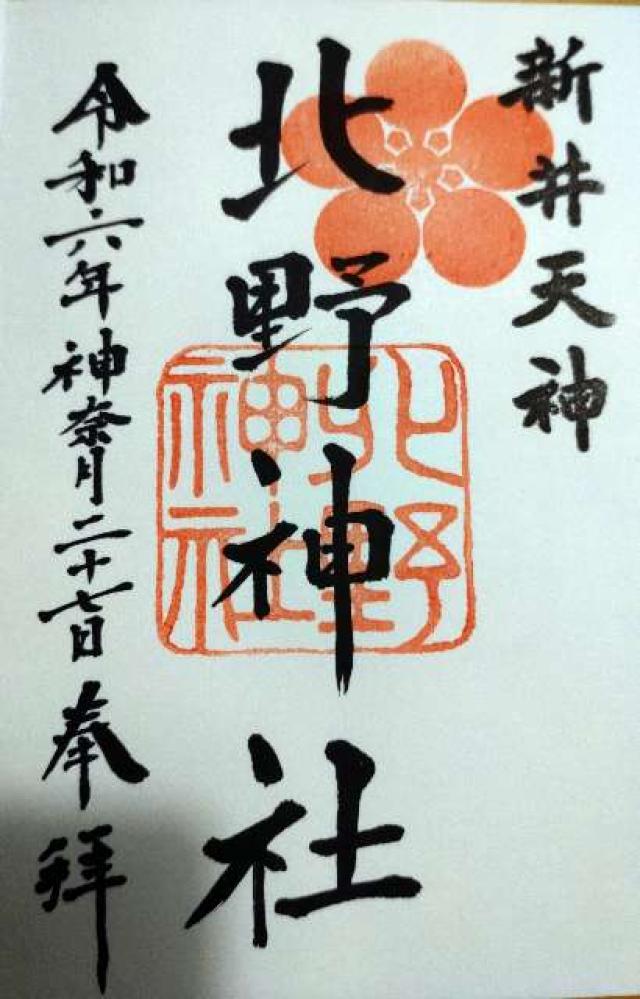 新井天神
北野神社
北野
神社
令和六年神奈月二十七日奉拝